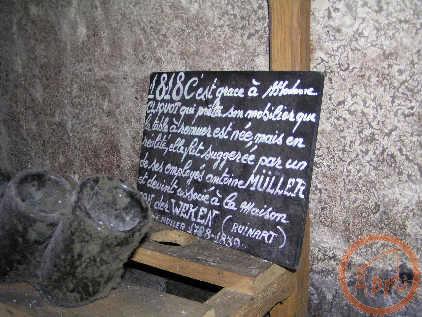 1818 C'est grace à Madame
CLIQUOT qui prêta son mobilier que
la table à remuer est née, mais en
réalité, elle fut suggerée par un
de ses employés antoine MÜLLER
et devint associé à la Maison
der WERKEN (RUINART)
MÜLLER 1788-1859